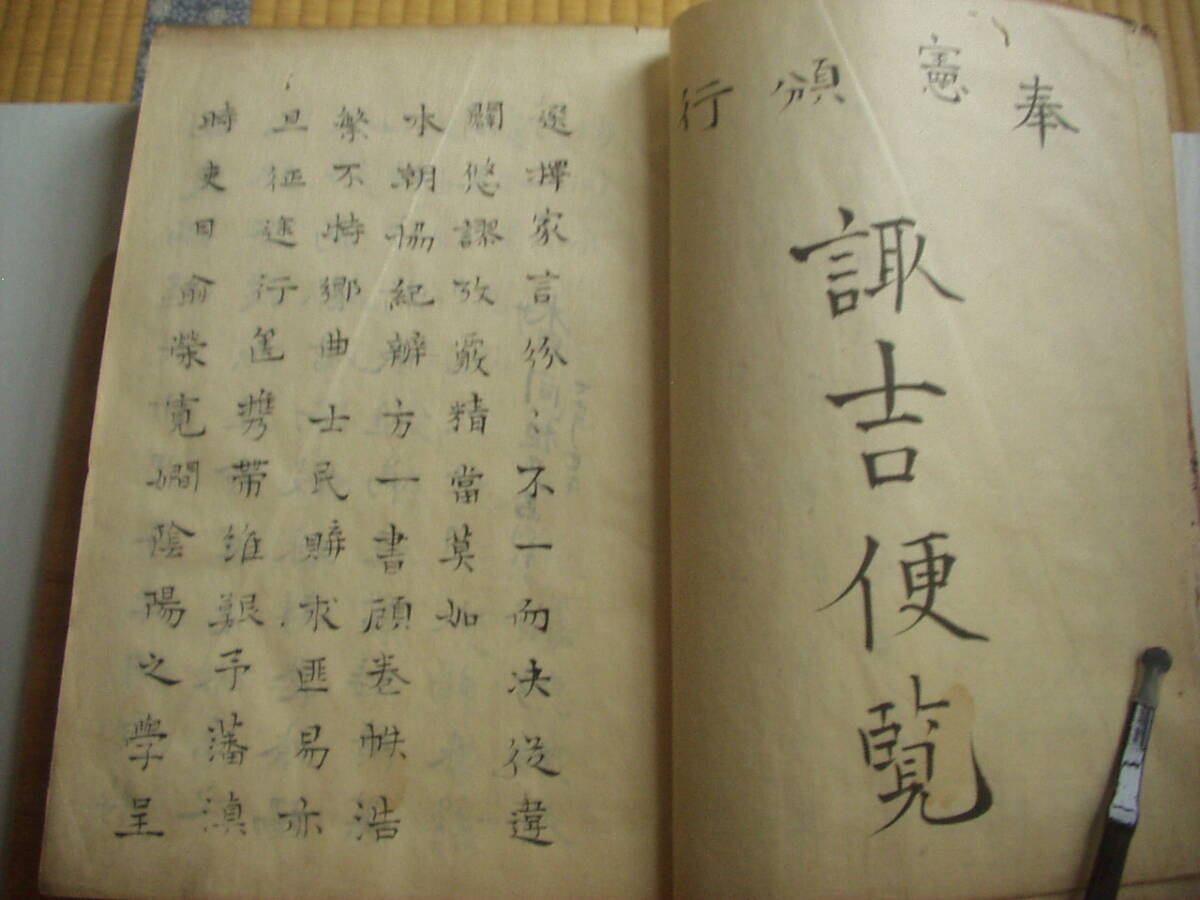 奉憲頒行
諏吉便覧
選擇家言紛〻不一而决從違
闢悠謬攷覈精當莫如
本朝協紀辨方一書顧卷帙浩
繁不特鄉曲士民購求匪易亦
且征途行攜帶維艱予藩滇
時吏目俞榮寬嫻陰陽之學呈